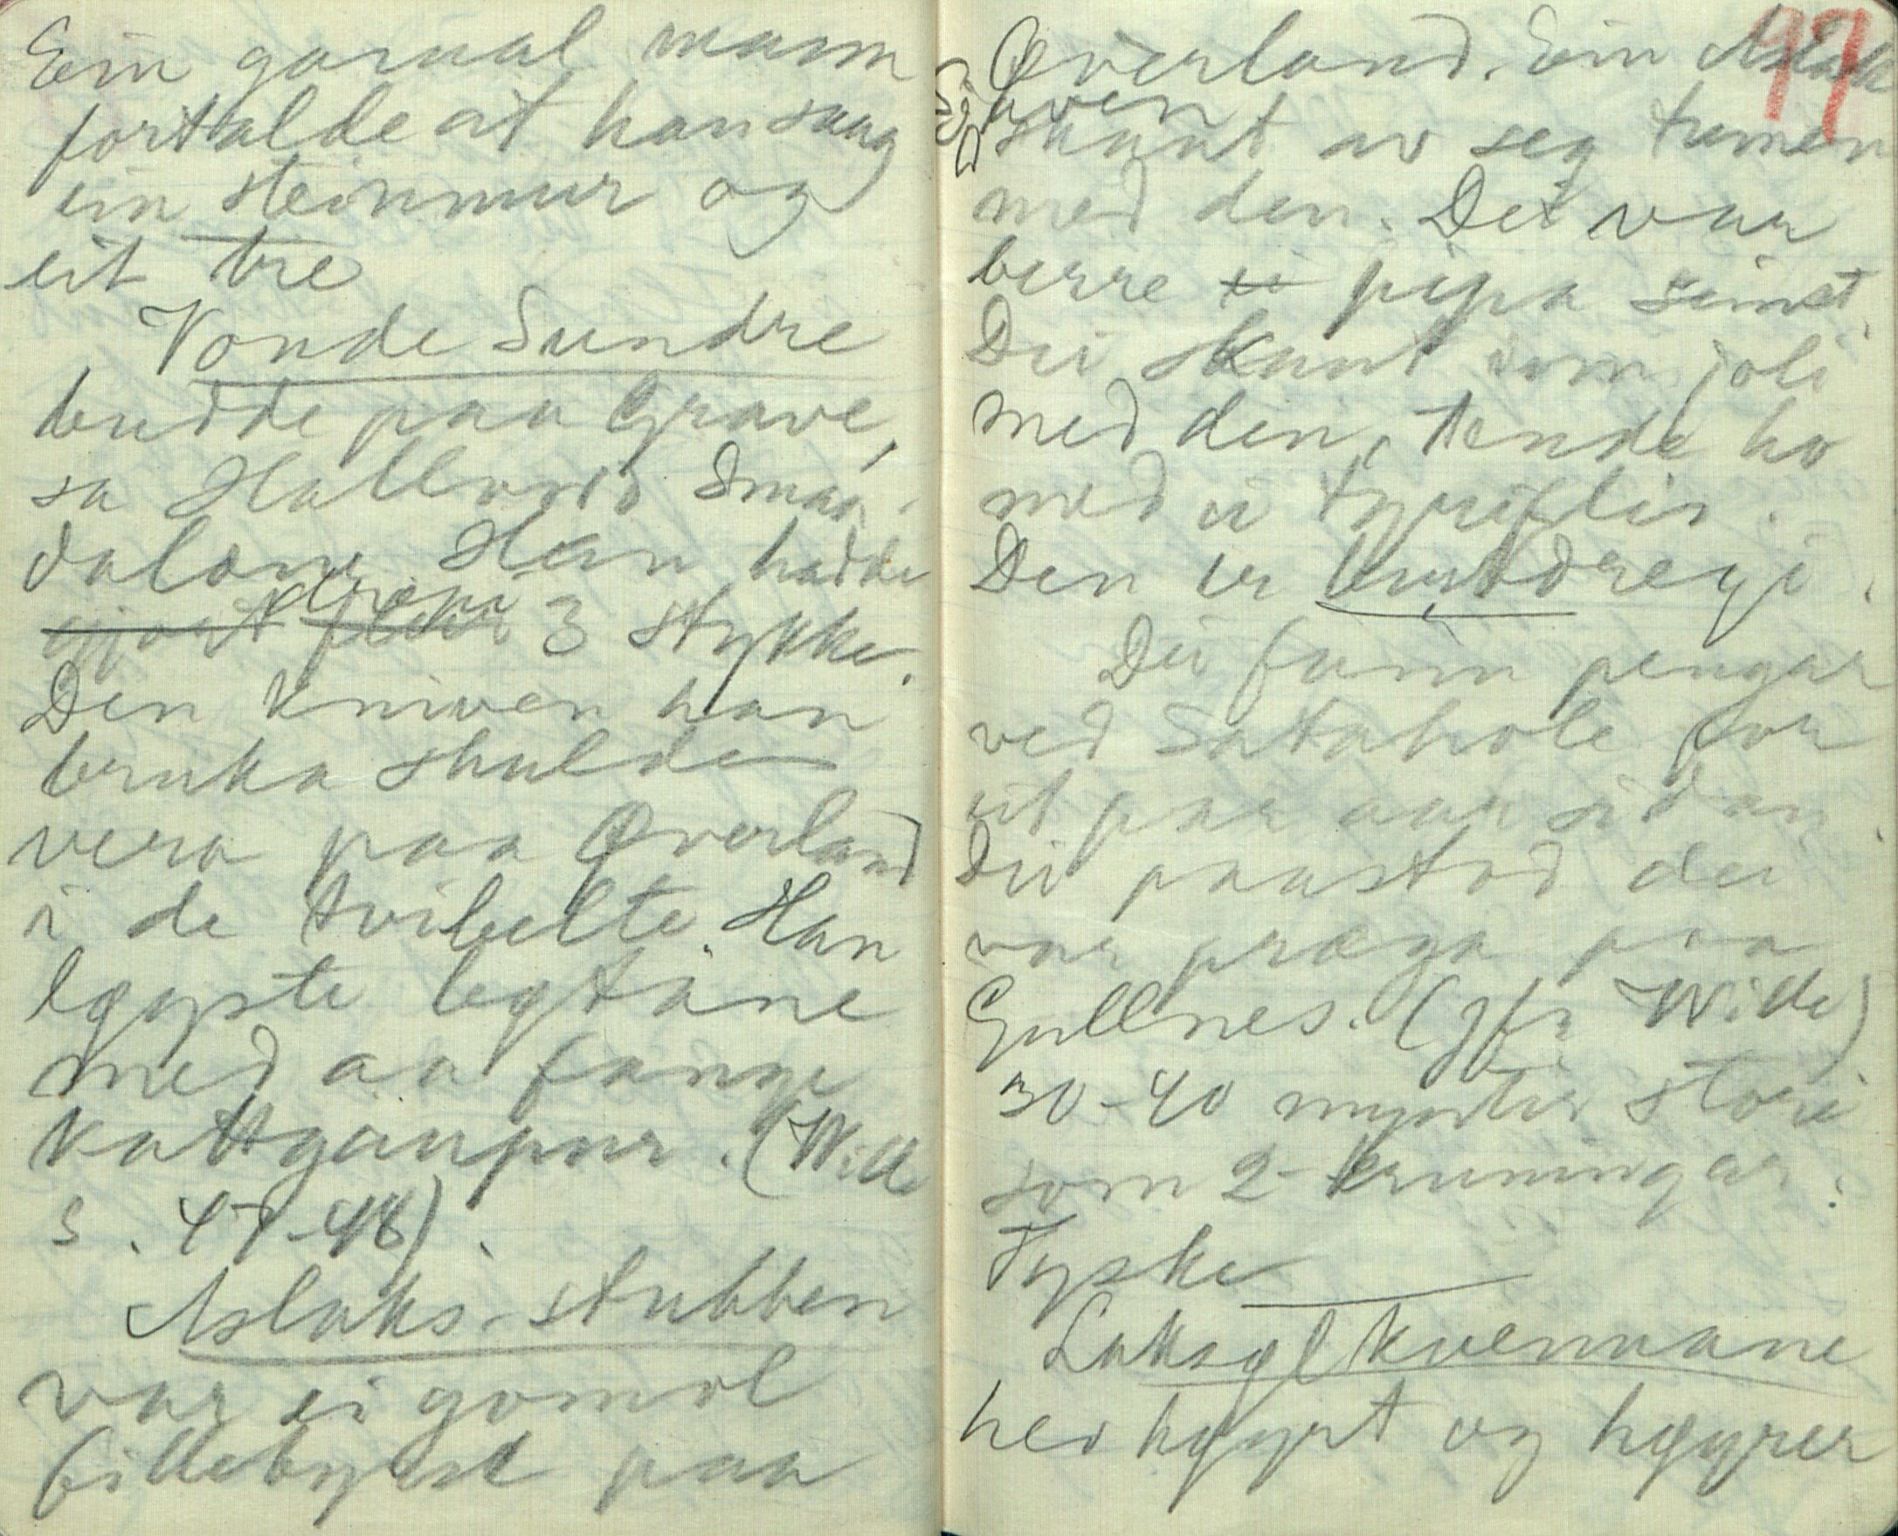 Ein gamal mann
fortalde at han saag
ein steinmur og
eit tre
Vonde Sundre
budde paa Grave,
sa Hallvord Smaa-
dalane. Han hadde
gjort drepi 3 stykke.
Den kniven han
bruka skulde
vera paa Øverland
i de tvibelte. Han
løyste legtane
med aa fange
kattgaupur. (Wille
s. 47-48).
Aslaks-stubben
var ei gomol
fillebyrse paa
77
Øverland. Ein Aslak
hven
skaut av seg tumen
med den. Det var
berre ei pipa
Dei skaut som joli
med den, tende ho
med ei tyriflis.
Den er burtdregi.
Dei funn pengar
ved Satahole for
eit par aar sidan.
Dei paastod dei
var præga paa
Gullnes. (jfr Wille)
30-40 myntir store
som 2-kruningar.
Tyske
kvennane
hev høyrt og høyrer